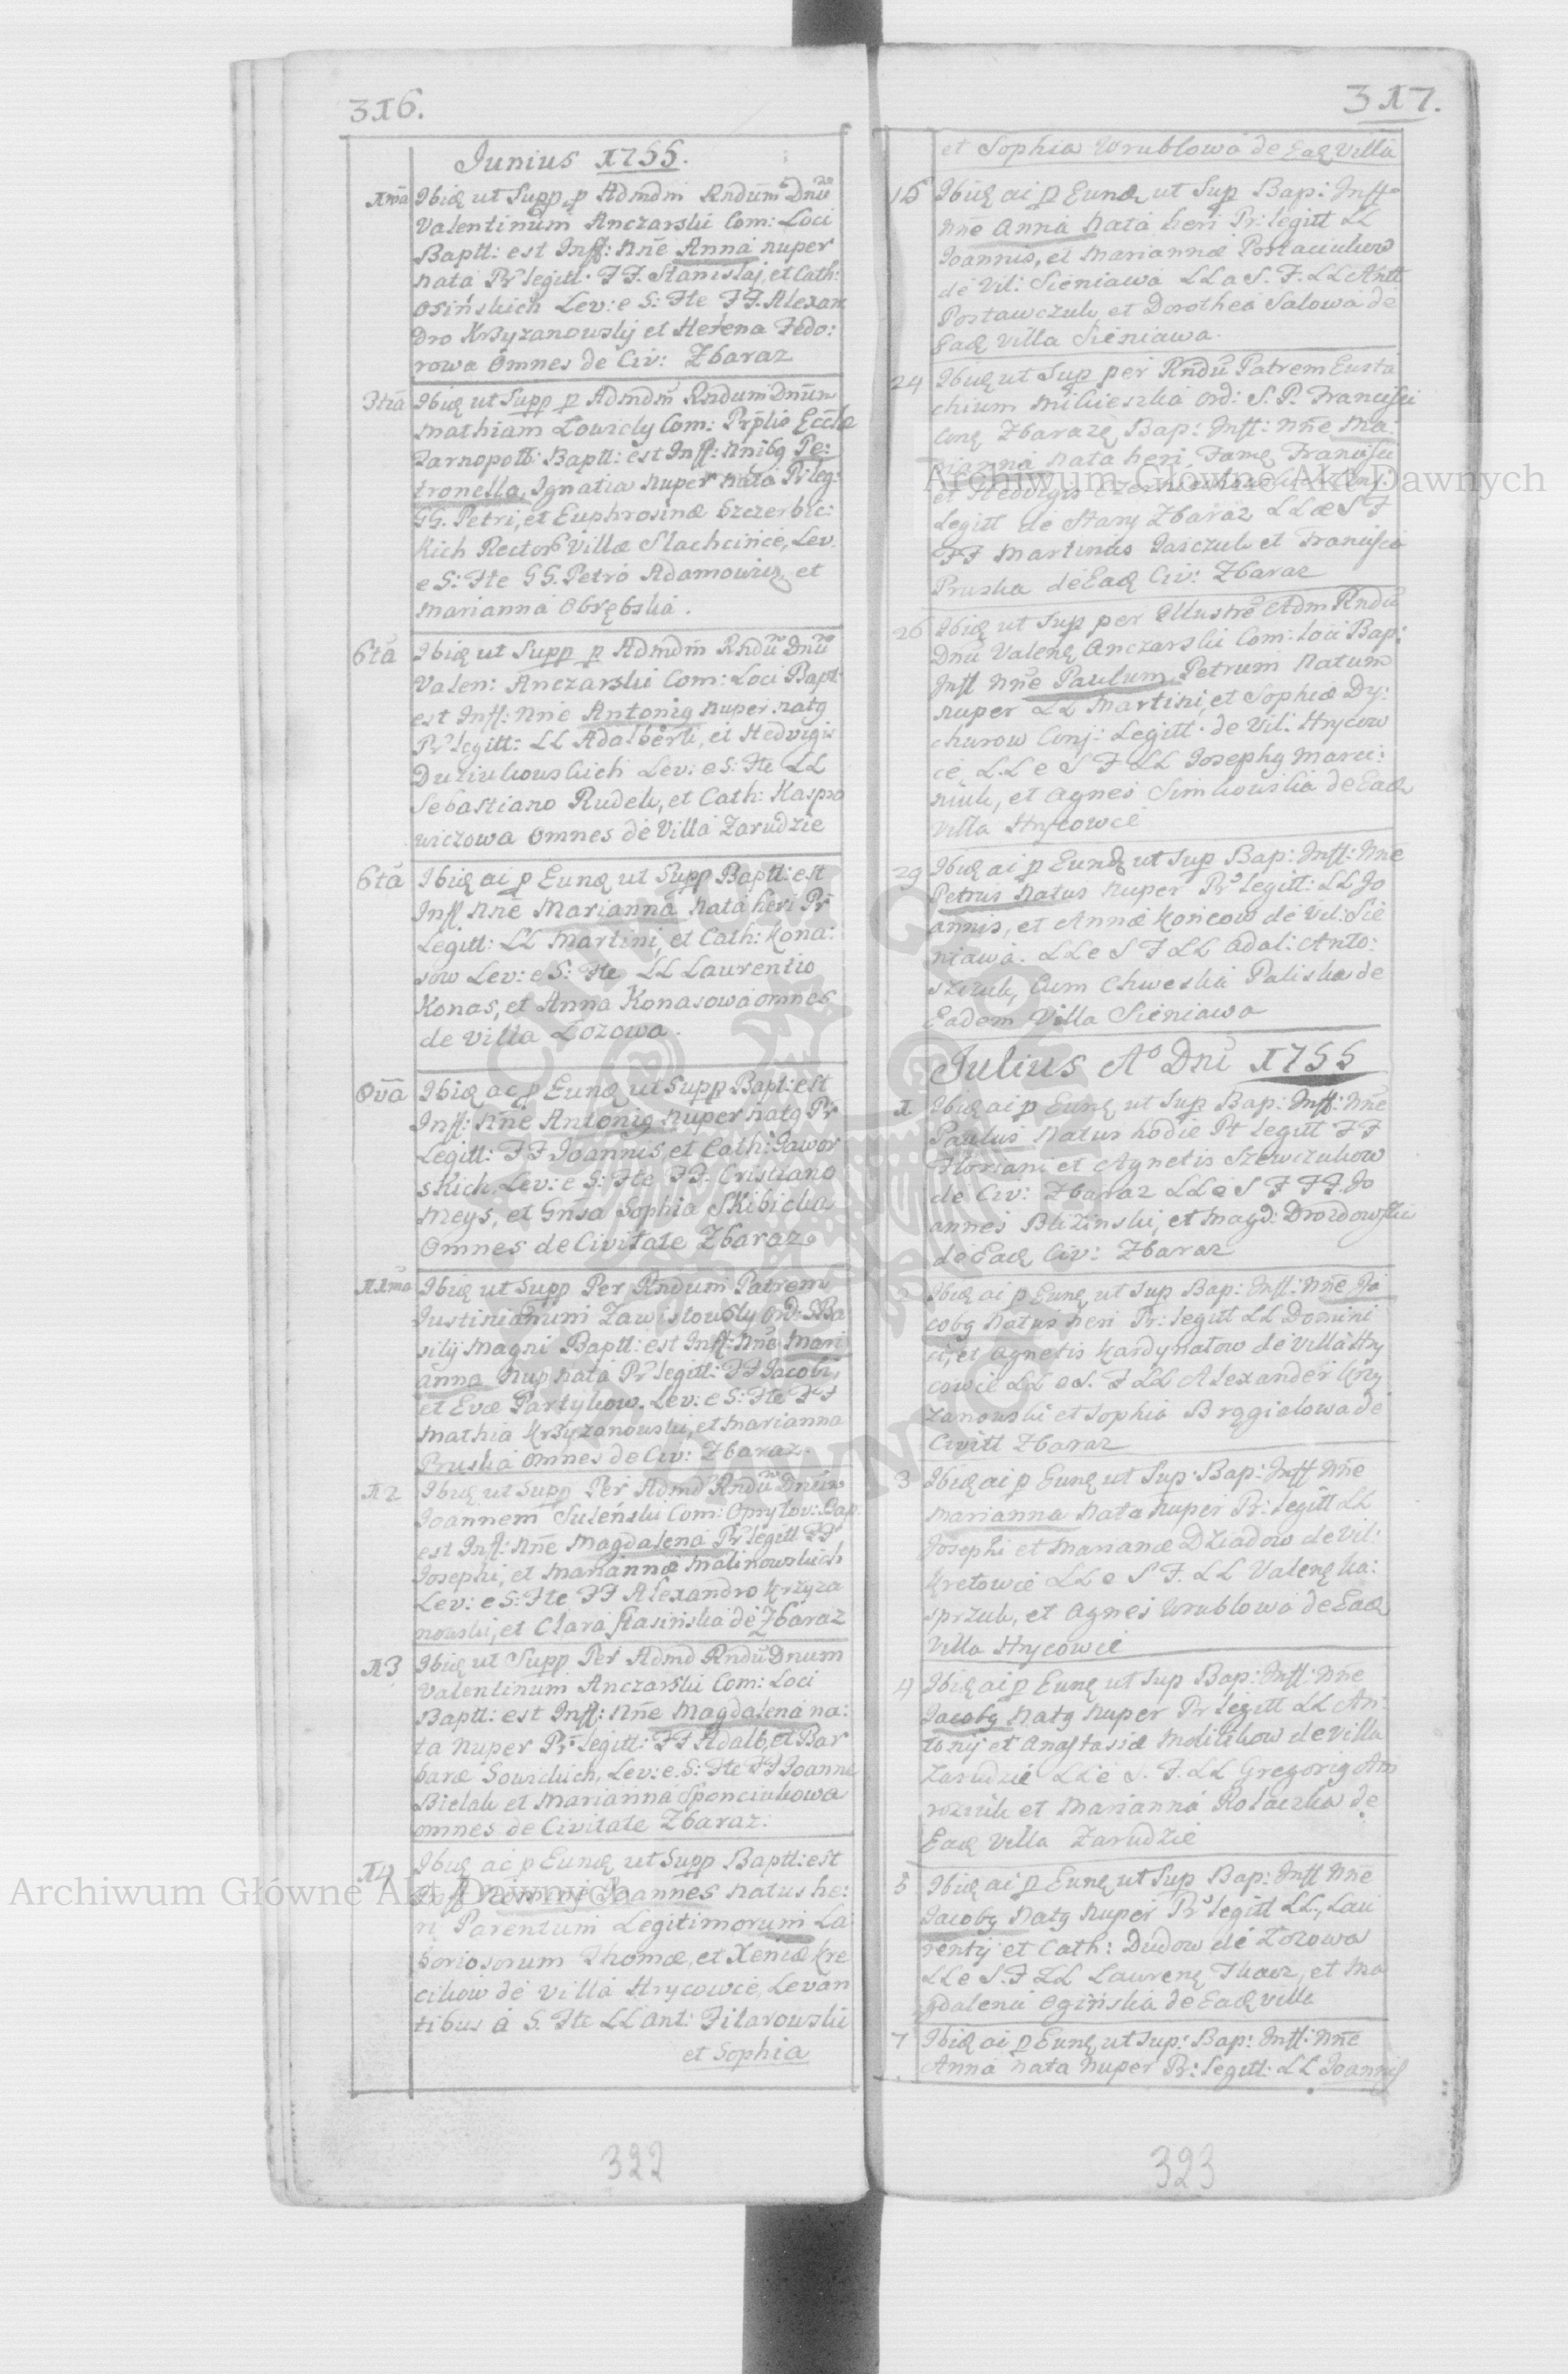 316.
Junius 1755.
1ma Ibiq ut Supp p Admdm Rndum Dnu
Valentinum Anczarski Com: Loci
Baptt: est Inff: Nne Anna nuper
nata Pr legitt. FF. Stanislaj, et Cath:
Osińskich Lev: e S: Fte FF. Alexan
Dro Krzyzanowskj et Helena Fedo:
rowa Omnes de Civ: Zbaraz
3tia Ibiq ut Supp p Admdm Rndum Dnum
Mathiam Łowidy Com: Prplio Eccle
Tarnopoll: Baptt: est Inff: Nnibq Pe:
tronella, Ignatia nuper nata Pr leg:
GG. Petri, et Euphrosinæ Szczerbic:
kich Rector Villæ Slachcince, Lev.
e S: Fte GG. Petro Adamowicz et
Marianna Obrębska.
6ta Ibiq ut Supp p Admdm Rndu Dnu
Valen: Anczarski Com: Loci Bapt:
est Inff: Nne Antoniq nuper natq
Pr legitt: LL Adalberti, et Hedvigis
Duziukowskich Lev: e S: Fte LL
Sebastiano Rudek, et Cath: Kaspro
wiczowa Omnes de Villa Zarudzie
6ta Ibiq ac p Eunq ut Supp Baptt: est
Inff Nne Marianna nata heri Pr
Legitt: LL Martini, et Cath: Kona:
sow Lev: e S: Fte LL Laurentio
Konas, et Anna Konasowa omnes
de Villa Łozowa.
Ova Ibiq ac p Eunq ut Supp Bapt: est
Inff: Nne Antoniq nuper natq Pr
Legitt: FF Joannis, et Cath: Jawor
skich, Lev: e S: Fte FF. Cristiano
Meys, et Gnsa Sophia Skibicka
Omnes de Civitate Zbaraz
11ma Ibiq ut Supp Per Rndum Patrem
Justinianum Zawislowsky Ord: S Ba
silij Magni Baptt: est Inff: Nne Mari
anna Nup nata Pr legitt: FF Jacobi,
et Evæ Partykow. Lev: e S: Fte FF
Mathia Krzyzanowski, et Marianna
Pruska Omnes de Civ: Zbaraz.
12 Ibiq ut Supp Per Admd Rndu Dnum
Joannem Suleński Com: Opryłov: Bap
est Inf: Nne Magdalena Pr legitt FF
Josephi, et Mariannæ Malinowskich
Lev: e S: Fte FF Alexandro Krzyza
nowski, et Clara Stasińska de Zbaraz
13 Ibiq ut Supp Per Admd Rndu Dnum
Valentinum Anczarski Com: Loci
Baptt: est Inff: Nne Magdalena na:
ta Nuper Pr legitt: FF Adalb, et Bar
baræ Sowickich, Lev: e. S: Fte FF Joanne
Bielak et Marianna Sponciukowa
omnes de Civitate Zbaraz:
14 Ibiq ac p Eunq ut Supp Baptt: est
Inff Nomine Joannes natus he:
ri Parentum Legitimorum La
boriosorum Thomæ, et Xeniæ Kre
cikow de Villa Hrycowce, Levan
tibus á S. Fte LL Ant: Filarowski
et Sophia
322
317.
et Sophia Wrublowa de Eaq Villa
15 Ibiq ac p Eunq ut Sup Bap: Inff
Nne Anna nata heri Pr: legitt LL
Joannis, et Mariannæ Postaciukow
de Vil: Sieniawa LL a S. F. LL Antt
Postawczuk et Dorothea Salowa de
Eaq Villa Sieniawa.
24 Ibiq ut Sup per Rndu Patrem Eusta
chium Mikieszka Ord: S. P. Francisci
Conq Zbarazq Bap: Inff: Nne Ma:
rianna nata heri. Famq Francisci
et Hedvigis
Legitt de Stary Zbaraz LL a S F
FF Martinus Jaśczuk et Francisca
Pruska de Eaq Civ: Zbaraz
26 Ibiq ut Sup per Illustre Adm Rndu
Dnu Valenq Anczarski Com: Loci Bap:
Inff Nne Paulum Petrum Natum
nuper LL Martini, et Sophiæ Dy:
churow Conj: Legitt. de Vil: Hrycow
ce LL e S F LL Josephq Marci:
niuk, et Agnes Simkowska de Eaq
Villa Hrycowce
29 Ibiq ac p Eunq ut Sup Bap: Inff: Nne
Petrus Natus Nuper Pr legitt: LL Jo
annis, et Annæ Końcow de Vil: Sie
niawa. LL e S F LL Adal: Anto:
szczuk, Cum Chweska Paliska de
Eadem Villa Sieniawa
Julius Aº Dni 1755
1 Ibiq ac p Eunq ut Sup Bap: Inff: Nne
Paulus Natus hodie Pt legitt FF
Floriani et Agnetis Szewczukow
de Civ: Zbaraz LL e S F FF. Jo
annes Blizinski, et Magd: Drozdowska
de Eaq Civ: Zbaraz
Ibiq ac p Eunq ut Sup Bap: Inff: Nne Ja
cobq Natus heri Pr: legitt LL Domini
ci, et Agnetis Kardynałow de Villa Hry
cowce LL e S. F LL Alexander Krzy
zanowski et Sophia Brzgielowa de
Civitt Zbaraz
3 Ibiq ac p Eunq ut Sup: Bap: Inff Nne
Marianna Nata Nuper Pr: legitt LL
Josephi et Marianæ Dziadow de Vil:
Kretowce LL e S F. LL Valenq Ka:
sprzuk, et Agnes Wrublowa de Eaq
Villa Hrycowce
4 Ibiq ac p Eunq ut Sup Bap: Inff: Nne
Jacobq Natq Nuper Pr legitt LL An:
tonij et Anastasiæ Molickow de Villa
Zarudzie LL e S. F. LL Gregoriq Am
roziuk et Marianna Rotaczka de
Eaq Villa Zarudzie
5 Ibiq ac p Eunq ut Sup Bap: Inff Nne
Jacobq Natq Nuper Pr legitt LL, Lau
rentij et Cath: Dudow de Łozowa
LL e S. F LL Laurenq Tkacz, et Ma
gdalena Ogińska de Eaq Villa
7 Ibiq ac p Eunq ut Sup: Bap: Inff: Nne
Anna nata Nuper Pr: legitt: LL Joannis
323
Archiwum Główne Akt Dawnych
Archiwum Główne Akt Dawnych